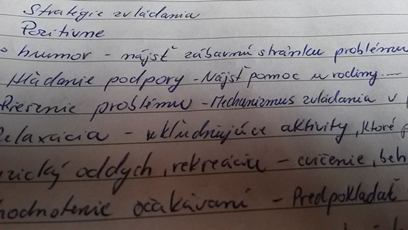 Stratégie zvládania
Pozitívne
humor - nájsť zábavnú stránku problému
Hľadanie podpory - Nájsť pomoc u rodiny....
Riešenie problému - Mechanizmus zvládania v
Relaxácia - ukľudňujúce aktivity, ktoré
oddych, rekreáciu - cvičenie, beh
hodnotenie očakávaní - Predpokladať